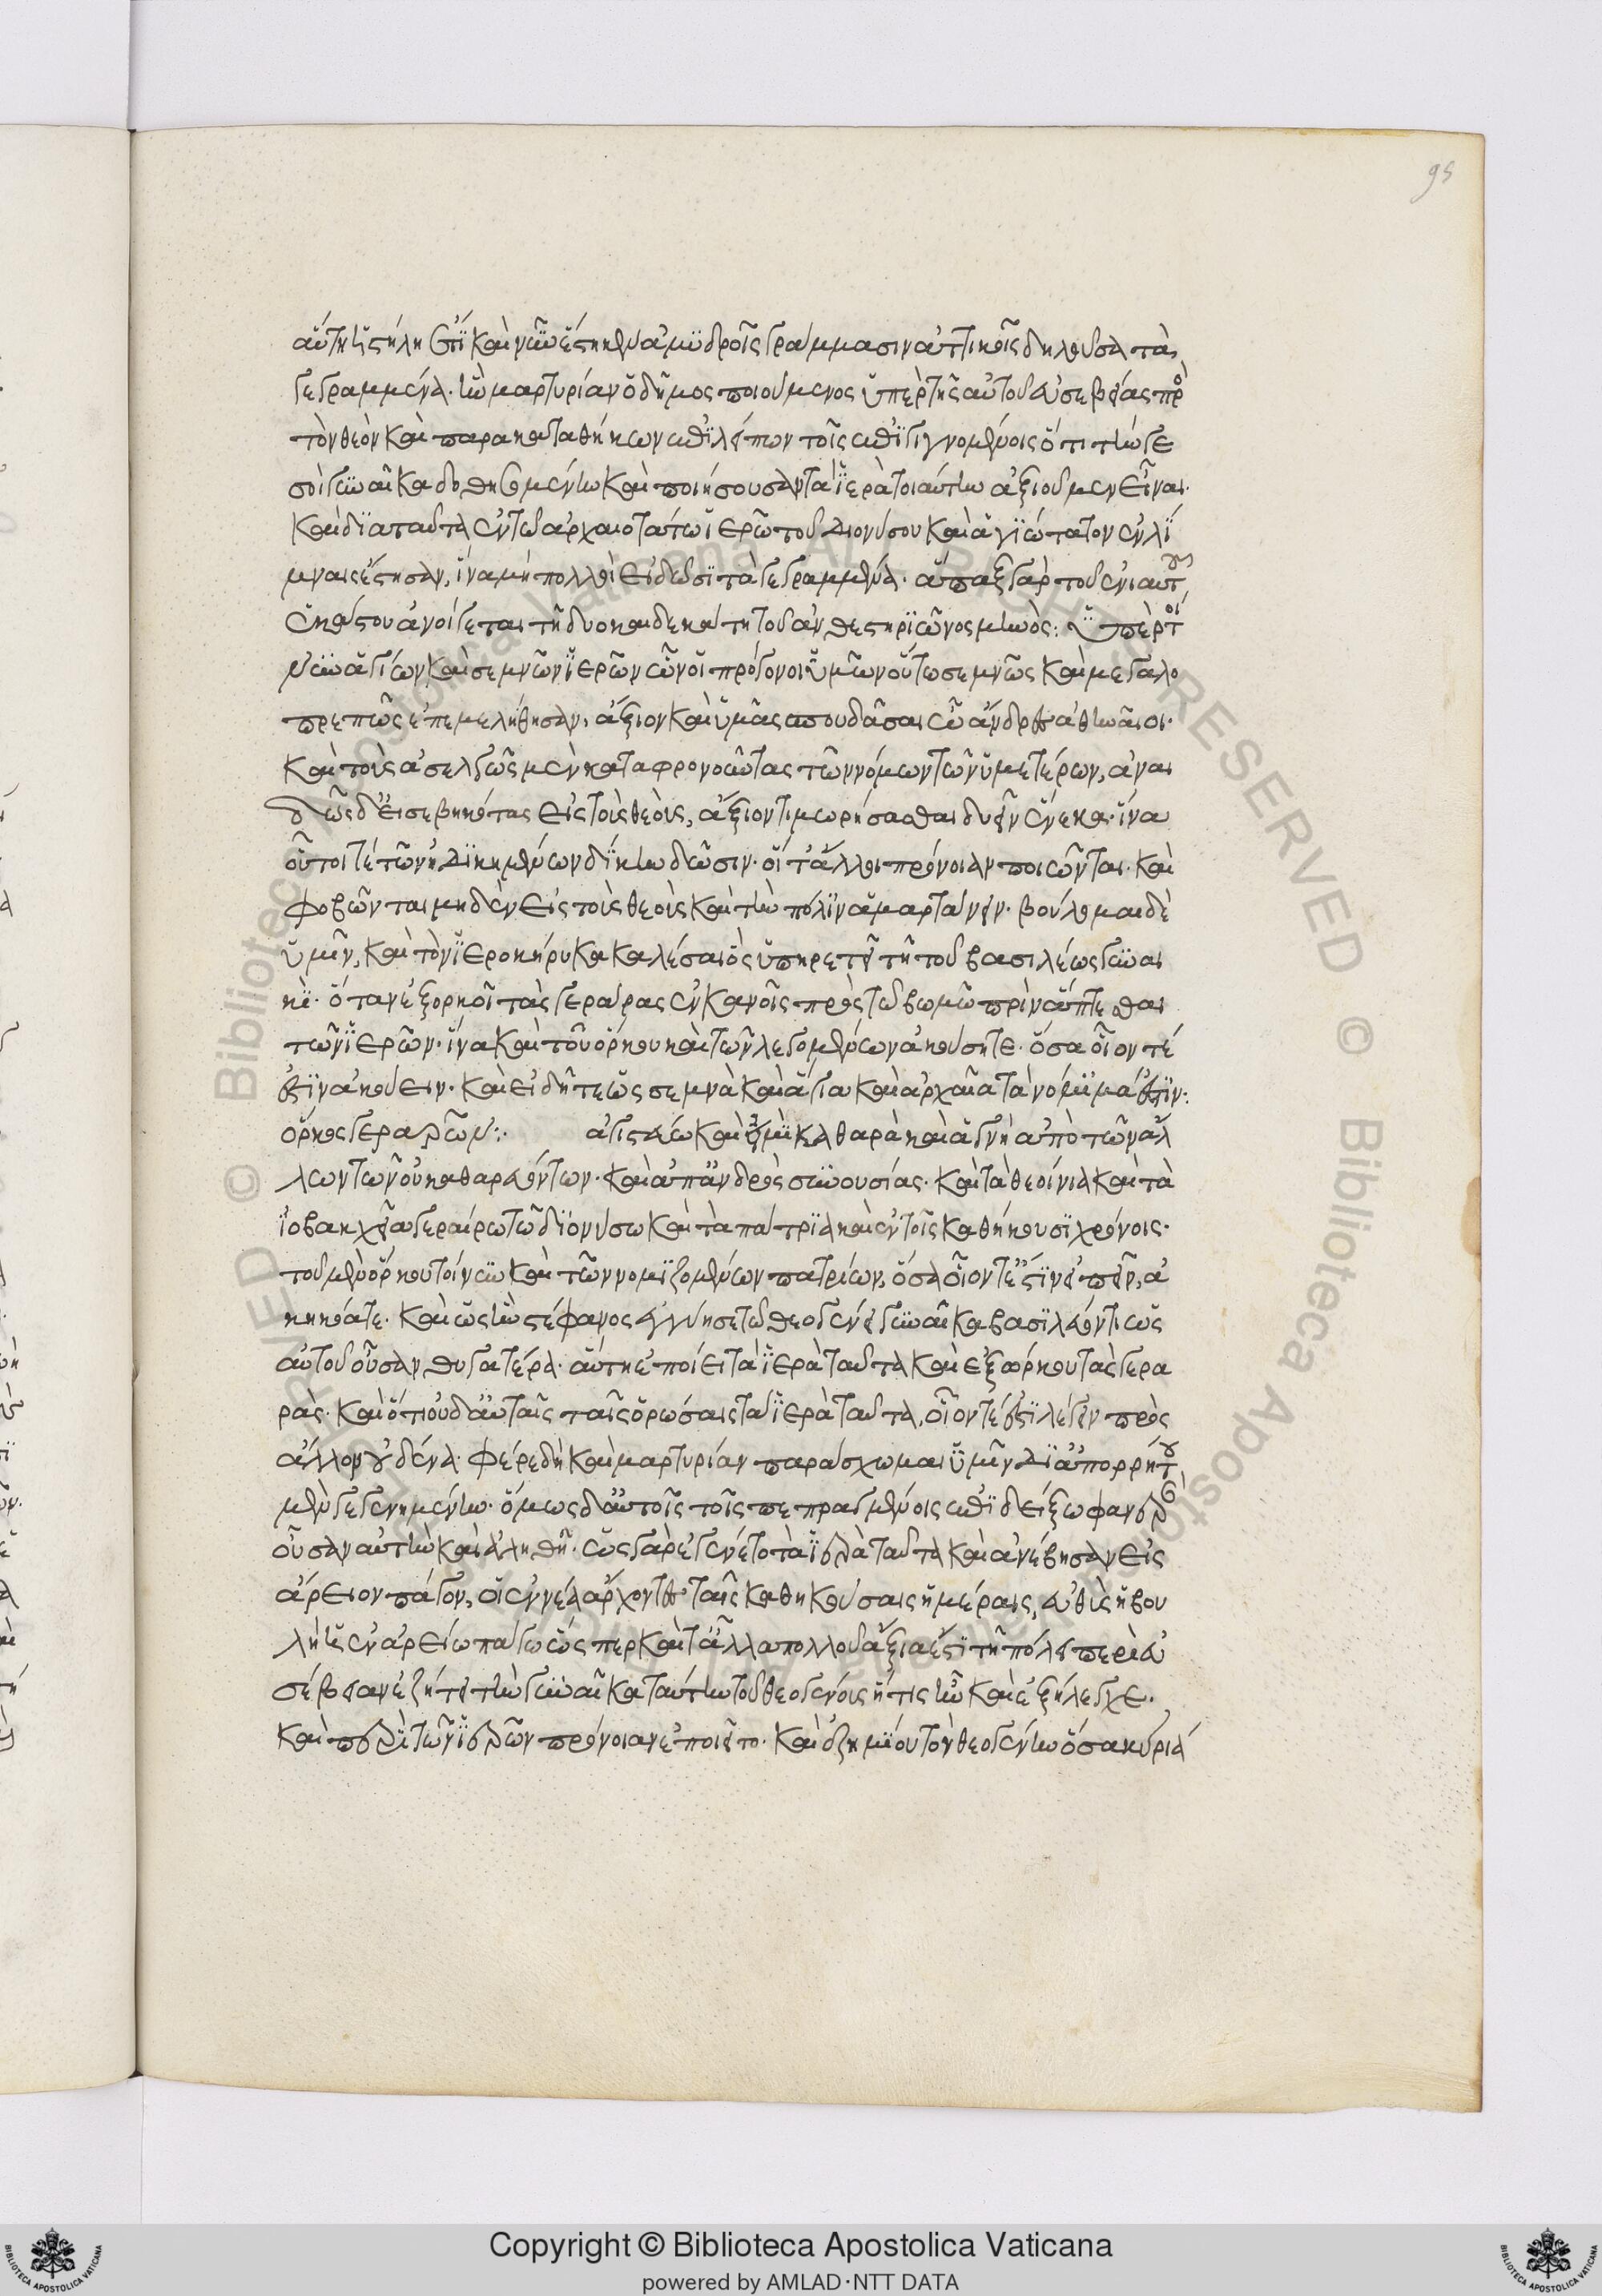 95
αὕτη ἡ στήλη ἔτι καὶ νῦν ἕστηκεν ἀμυδροῖς γράμμασιν ἀττικοῖς δηλοῦσα τὰ
γεγραμμένα· ἣν μαρτυρίαν ὁ δῆμος ποιούμενος ὑπὲρ τῆς αὑτοῦ εὐσεβείας πρὸς
τὸν θεὸν καὶ παρακαταθήκην καταλείπων τοῖς ἐπιγιγνομένοις ὅτι τήν γε
σοὶ γυναῖκα δοθησομένην καὶ ποιήσουσαν τὰ ἱερὰ τοιαύτην ἀξιοῦμεν εἶναι·
καὶ διὰ ταῦτα ἐν τῷ ἀρχαιοτάτῳ ἱερῷ τοῦ Διονύσου καὶ ἁγιώτατον ἐν λί
μναις ἔστησαν, ἵνα μὴ πολλοὶ εἰδῶσι τὰ γεγραμμένα· ἅπαξ γὰρ τοῦ ἐνιαυτοῦ
ἑκάστου ἀνοίγεται τῇ δυοκαιδεκάτῃ τοῦ ἀνθεστηριῶνος μηνός: ὑπὲρ τοί
νυν ἁγίων καὶ σεμνῶν ἱερῶν ὧν οἱ πρόγονοι ὑμῶν οὕτω σεμνῶς καὶ μεγαλο
πρεπῶς ἐπεμελήθησαν, ἄξιον καὶ ὑμᾶς σπουδάσαι ὦ ἄνδρες ἀθηναῖοι·
καὶ τοὺς ἀσελγῶς μὲν καταφρονοῦντας τῶν νόμων τῶν ὑμετέρων, ἀναι
δῶς δ' εἰσεβηκότας εἰς τοὺς θεούς, ἄξιον τιμωρήσασθαι δυεῖν ἕνεκα· ἵνα
οὗτοί τε τῶν ἠδικημένων δίκην δῶσιν· οἵ τ' ἄλλοι πρόνοιαν ποιῶνται· καὶ
φοβῶνται μηδὲν εἰς τοὺς θεοὺς καὶ τὴν πόλιν ἁμαρτάνειν· βούλομαι δὲ
ὑμῖν, καὶ τὸν ἱεροκήρυκα καλέσαι ὃς ὑπηρετεῖ τῇ τοῦ βασιλέως γυναι
κί· ὅταν ἐξορκοῖ τὰς γεραιρὰς ἐν κανοῖς πρὸς τῷ βωμῷ πρὶν ἅπτεσθαι
τῶν ἱερῶν· ἵνα καὶ τοῦ ὅρκου καὶ τῶν λεγομένων ἀκούσητε· ὅσα οἷόν τέ
ἐστιν ἀκούειν· καὶ εἰδῆτε ὡς σεμνὰ καὶ ἅγια καὶ ἀρχαῖα τὰ νόμιμά ἐστιν:
ὅρκος γεραιρῶν: ἁγιστεύω καὶ εἰμὶ καθαρὰ καὶ ἁγνὴ ἀπὸ τῶν ἀλ
λων τῶν οὐ καθαρευόντων· καὶ ἀπ' ἀνδρὸς συνουσίας· καὶ τὰ θεοίνια καὶ τὰ
ἰοβακχεῖα γεραίρω τῷ διονύσῳ κατὰ τὰ πάτρια καὶ ἐν τοῖς καθήκουσι χρόνοις·
τοῦ μὲν ὅρκου τοίνυν καὶ τῶν νομιζομένων πατρίων, ὅσα οἷόν τ' ἐστὶν εἰπεῖν, ἀ
κηκόατε· καὶ ὡς ἣν στέφανος ἠγγύησε τῷ θεογένει γυναῖκα βασιλεύοντι ὡς
αὑτοῦ οὖσαν θυγατέρα· αὕτη ἐποίει τὰ ἱερὰ ταῦτα καὶ ἐξώρκου τὰς γερα
ράς· καὶ ὅτι οὐδ' αὐταῖς ταῖς ὁρώσαις τὰ ἱερὰ ταῦτα, οἷόν τέ ἐστι λέγειν πρὸς
ἄλλον οὐδένα· φέρε δὴ καὶ μαρτυρίαν παράσχωμαι ὑμῖν δι' ἀπορρήτου
μὲν γεγενημένην· ὅμως δ' αὐτοῖς τοῖς πεπραγμένοις ἐπιδείξω φανερὰν
οὖσαν αὐτὴν καὶ ἀληθῆ· ὡς γὰρ ἐγένετο τὰ ἱερὰ ταῦτα καὶ ἀνέβησαν εἰς
ἄρειον πάγον, οἱ ἐννέα ἄρχοντες ταῖς καθηκούσαις ἡμέραις, εὐθὺς ἡ βου
λὴ ἡ ἐν ἀρείῳ πάγῳ ὥσπερ καὶ τἄλλα πολλοῦ ἄξια ἐστὶ τῇ πόλει περὶ εὐ
σέβειαν ἐζήτει τὴν γυναῖκα ταύτην τοῦ θεογένους ἥτις ἦν καὶ ἐξήλεγχε·
καὶ περὶ τῶν ἱερῶν πρόνοιαν ἐποιεῖτο· καὶ ἐζημίου τὸν θεογένην ὅσα κυρία
Copyright © Biblioteca Apostolica Vaticana
powered by AMLAD·NTT DATA